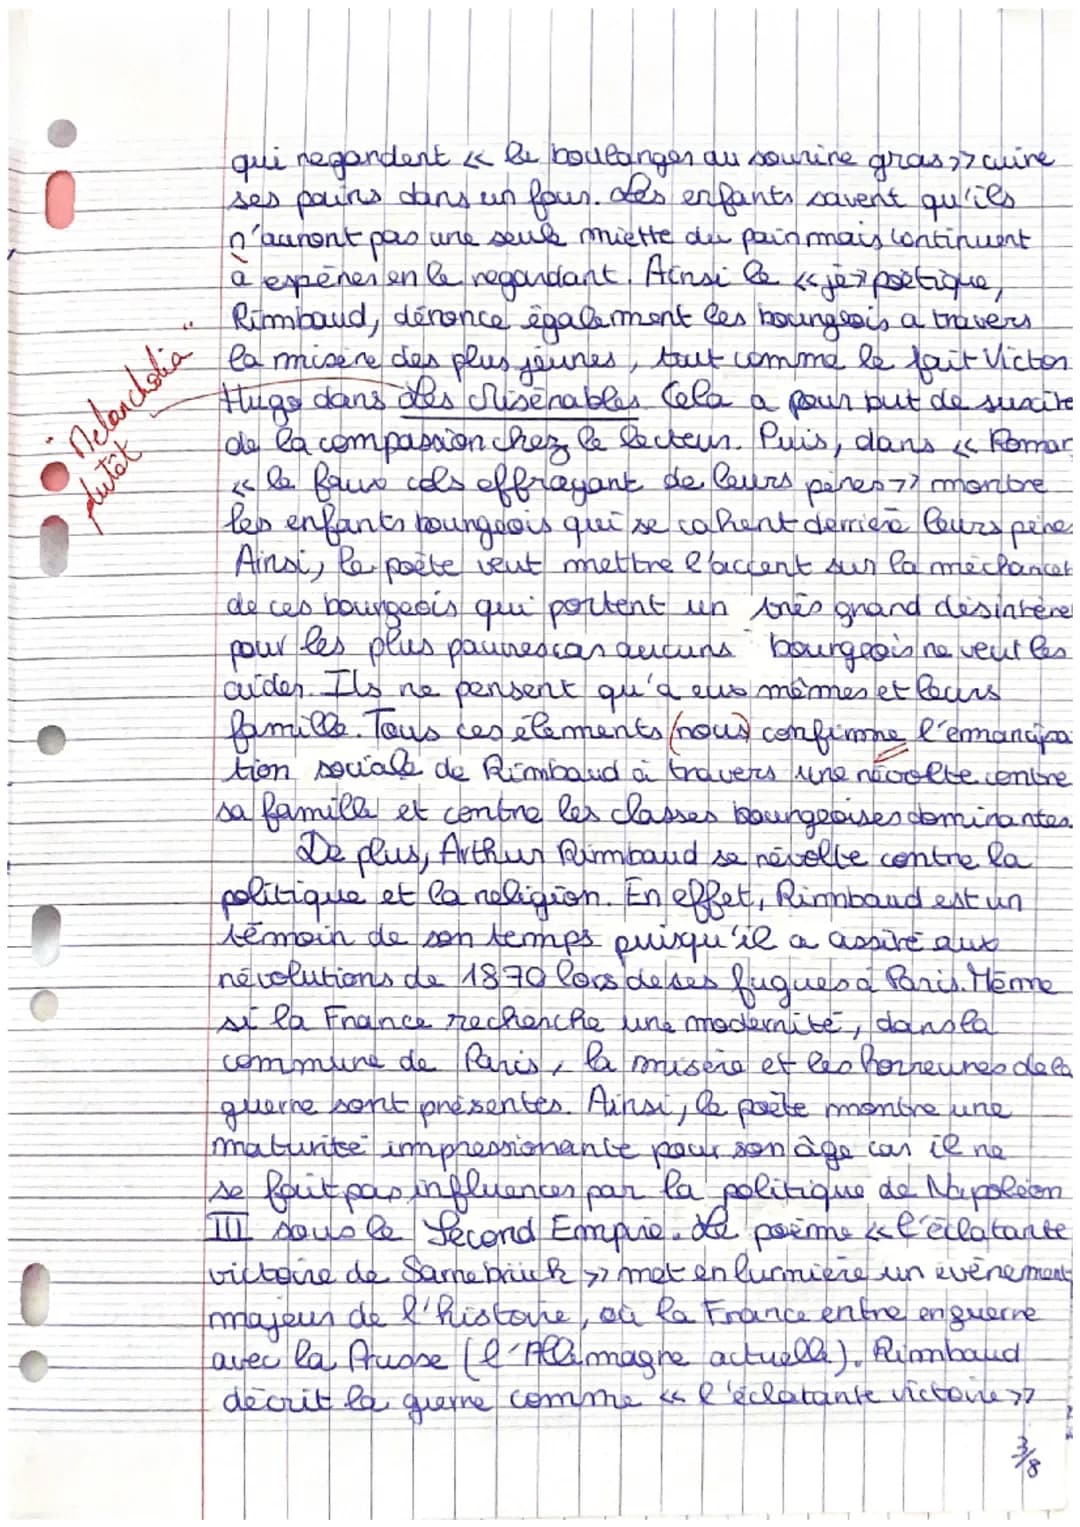 qui regardent << le boulanger au sourire gras >> cuire
ses pains dans un four. Les enfants savent qu'ils
n'auront pas une seule miette du pain mais continuent
à espérer en le regardant. Ainsi le << je >> poétique,
Rimbaud, dénonce également les bourgeois a travers
la misère des plus jeunes, tout comme le fait Victor
"Melancholia"
plutôt
Hugo dans Les Misérables. Cela a pour but de suscite
de la compassion chez le lecteur. Puis, dans << Roman
<< le faux cols effrayant de leurs pères >> montre
les enfants bourgeois qui se cahent derrière leurs père
Ainsi, le poète veut mettre l'accent sur la méchancet
de ces bourgeois qui portent un très grand désintére
pour les plus pauvres car aucuns bourgeois ne veut les
aider. Ils ne pensent qu'à eux mêmes et leurs
famille. Tous ces élements (nous) confirme l'émancipa
tion sociale de Rimbaud à travers une révolte contre
sa famille et contre les classes bourgeoises dominantes.
De plus, Arthur Rimbaud se révolte contre la
politique et la religion. En effet, Rimbaud est un
témoin de son temps puisqu'il a assité aux
révolutions de 1870 lors de ses fugues à Paris. Même
si la France recherche une modernité, dans la
commune de Paris, la misère et les horreures de la
guerre sont présentes. Ainsi, le poète montre une
maturité impressionante pour son âge car il ne
se fait pas influencer par la politique de Napoléon
III sous le Second Empire. Le poème << l'éclatante
victoire de Sarrebrück >> met en lumière un évènement
majeur de l'histoire, où la France entre en guerre
avec la Prusse (l'Allemagne actuelle). Rimbaud
décrit la guerre comme << l'éclatante victoire >>
3/8